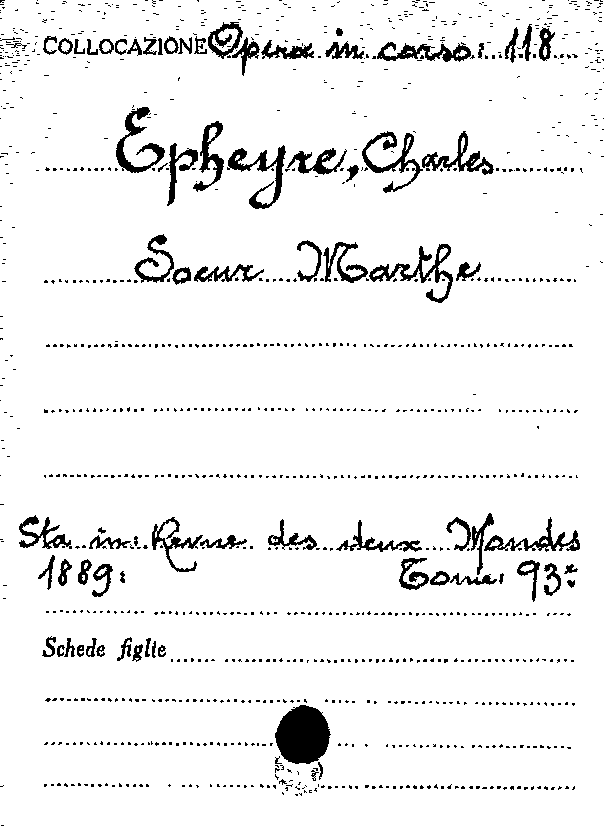 COLLOCAZIONE Opera in corso: 118
Epheyre, Charles
Soeur Marthe
Sta in: Revue des deux Mondes
1889: Tome: 93e
Schede figlie